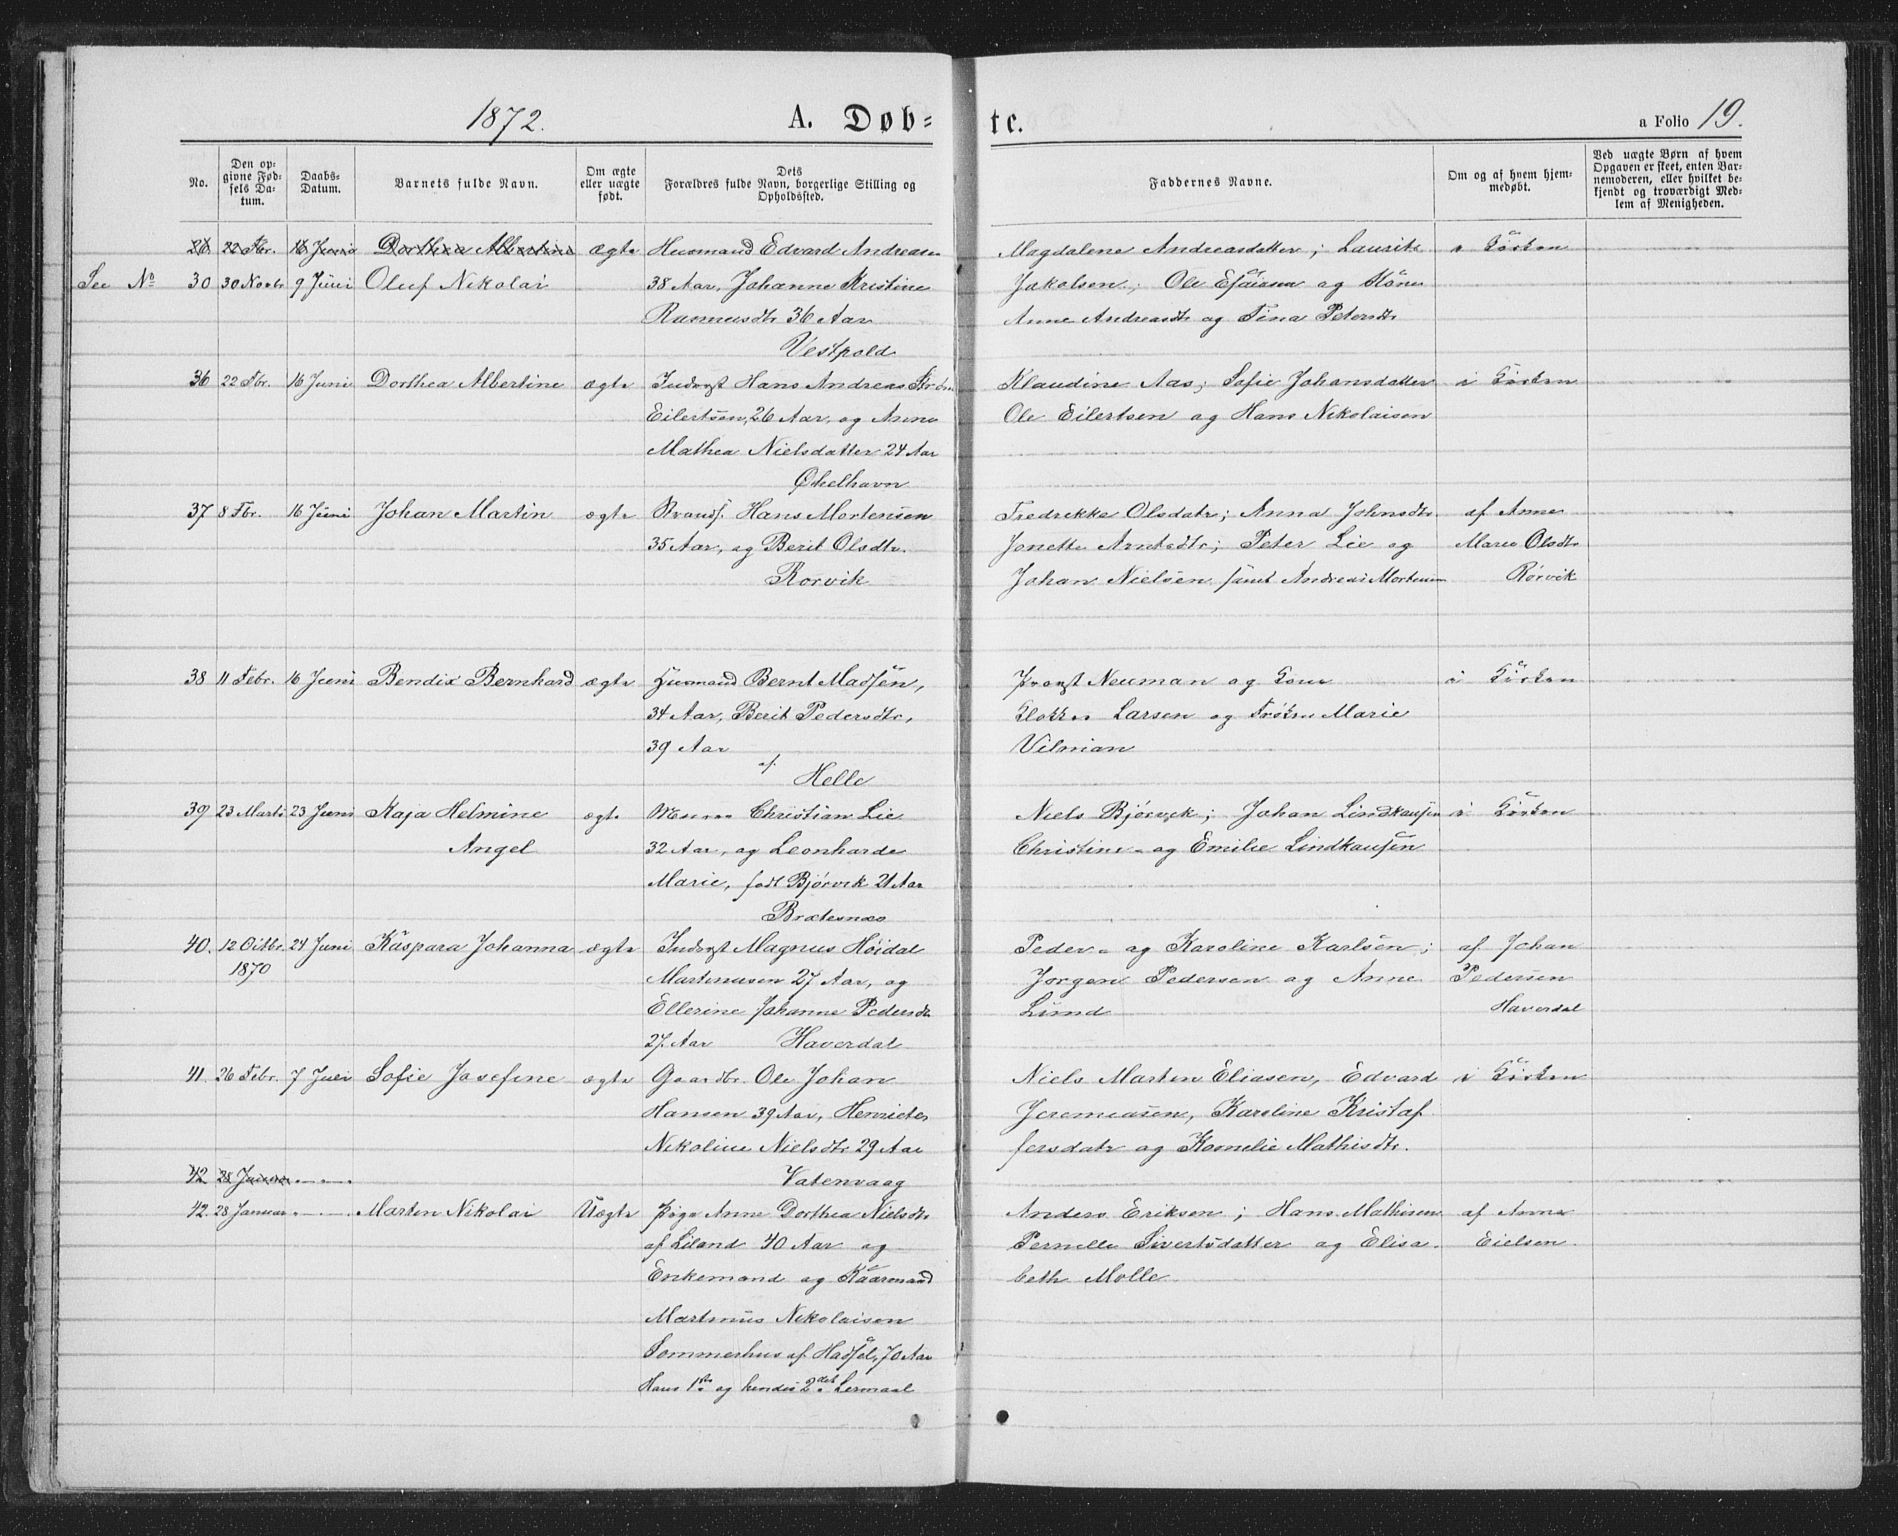 1872.
A. Døb=
te.
a Folio 19.
No.
Den op-
givne Fød-
sels Da-
tum.
Daabs-
Datum.
Barnets fulde Navn.
Om ægte
eller uægte
født.
Dets
Forældres fulde Navn, borgerlige Stilling og
Opholdssted.
Faddernes Navne.
Om og af hvem hjem-
medøbt.
Ved uægte Børn af hvem
Opgaven er skeet, enten Bar-
nemoderen, eller hvilket be-
kjendt og troværdigt Med-
lem af Menigheden.
26 22 Fbr. 16 Juni Dorthea Albertine ægte Husmand Edvard Andreasen Magdalene Andreasdatter; Laurits i Kirken
See No 30 30 Novbr 9 Juni Oluf Nikolai 38 Aar, Johanne Kristine Jakobsen; Ole Esaiasen og Kone
Rasmusdtr 36 Aar Anne Andreasdtr og Tina Petersdtr
Vestpold
36 22 Fbr. 16 Juni Dorthea Albertine ægte Inderst Hans Andreas Klaudine Aas; Sofie Johansdatter i Kirken
Eilertsen, 26 Aar, og Anne Ole Eilertsen og Hans Nikolaisen
Mathea Nielsdatter 24 Aar
Økelhavn
37 8 Fbr. 16 Juni Johan Martin ægte Strands. Hans Mortensen Fredrikke Olsdatr; Anna Johnsdtr af Anne
35 Aar, og Berit Olsdtr. Jonette Arntsdtr; Peter Lie og Marie Olsdtr
Rørvik Johan Nielsen samt Andreas Mortensen Rørvik
38 11 Febr. 16 Juni Bendix Bernhard ægte Husmand Bernt Madsen, Provst Neuman og Kone i Kirken
34 Aar, Berit Pedersdtr, Klokker Larsen og Frøken Marie
39 Aar Vilmian
af Helle
39 23 Marts 23 Juni Kaja Helmine ægte Christian Lie Niels Bjørvik; Johan Lindkausen i Kirken
Angel 32 Aar, og Leonharde Christine - og Emilie Lindkausen
Marie, født Bjørvik 21 Aar
Brætesnæs
40. 12 Octbr. 24 Juni Kaspara Johanna ægte Inderst Magnus Høidal Peder - og Karoline Karlsen; af Johan
1870 Martinusen 27 Aar, og Jørgen Pedersen og Anne Pedersen
Ellerine Johanne Pedersdtr Lund Haverdal
27 Aar Haverdal
41. 26 Febr. 7 Juli Sofie Josefine ægte Gaardbr. Ole Johan Niels Marten Eliasen, Edvard i Kirken
Hansen 39 Aar, Henriette Jeremiasen, Karoline Kristof
Nikoline Nielsdtr 29 Aar fersdatr og Kornelie Mathisdtr.
42 28 Januar Vatenvaag
42. 28 Januar . - . - Marten Nikolai Uægte Pige Anne Dorthea Nielsdtr Anders Eriksen; Hans Mathisen af Anne
af Liland 40 Aar og Pernelle Sivertsdatter og Elisa- Eielsen
Enkemand og Kaarmand beth Molle
Martinus Nikolaisen
Sommerhus af Hadsel, 70 Aar
Hans 1ste og hendes 2det Leiermaal